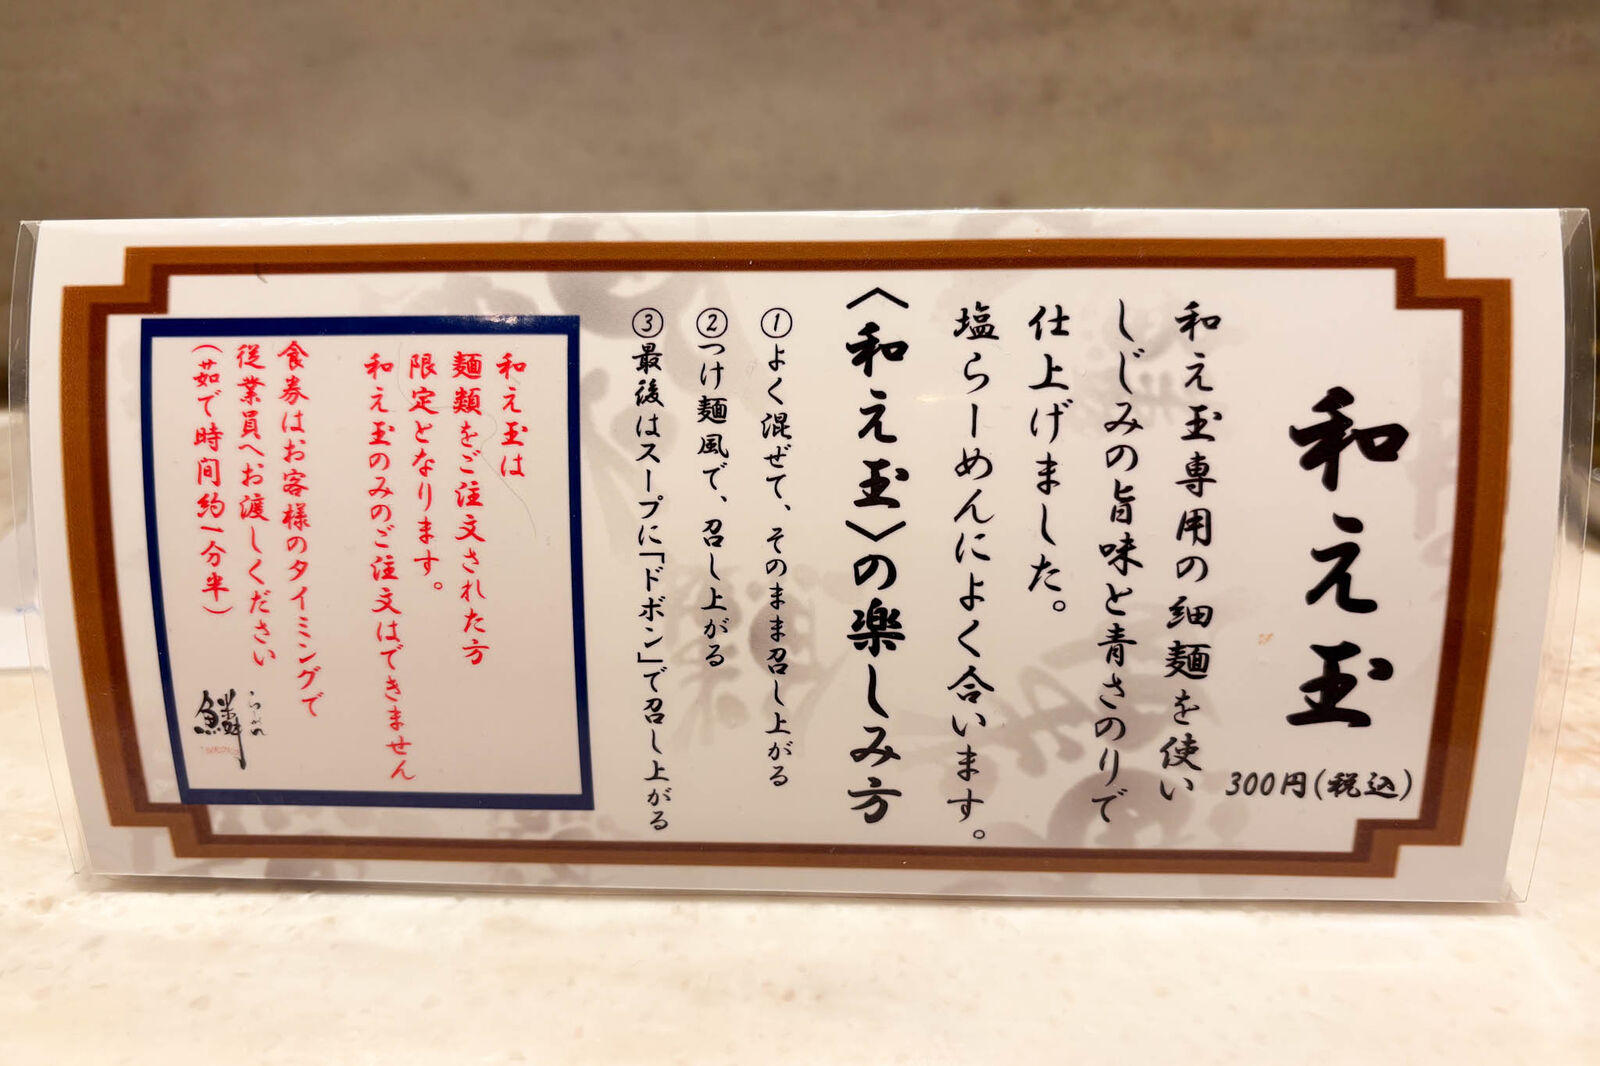 和え玉
300円(税込)
和え玉専用の細麺を使い
しじみの旨味と青さのりで
仕上げました。
塩らーめんによく合います。
〈和え玉〉の楽しみ方
①よく混ぜて、そのまま召し上がる
②つけ麺風で、召し上がる
③最後はスープに「ドボン」で召し上がる
和え玉は
麺類をご注文された方
限定となります。
和え玉のみのご注文はできません
食券はお客様のタイミングで
従業員へお渡しください
(茹で時間約一分半)
らーめん
鱗